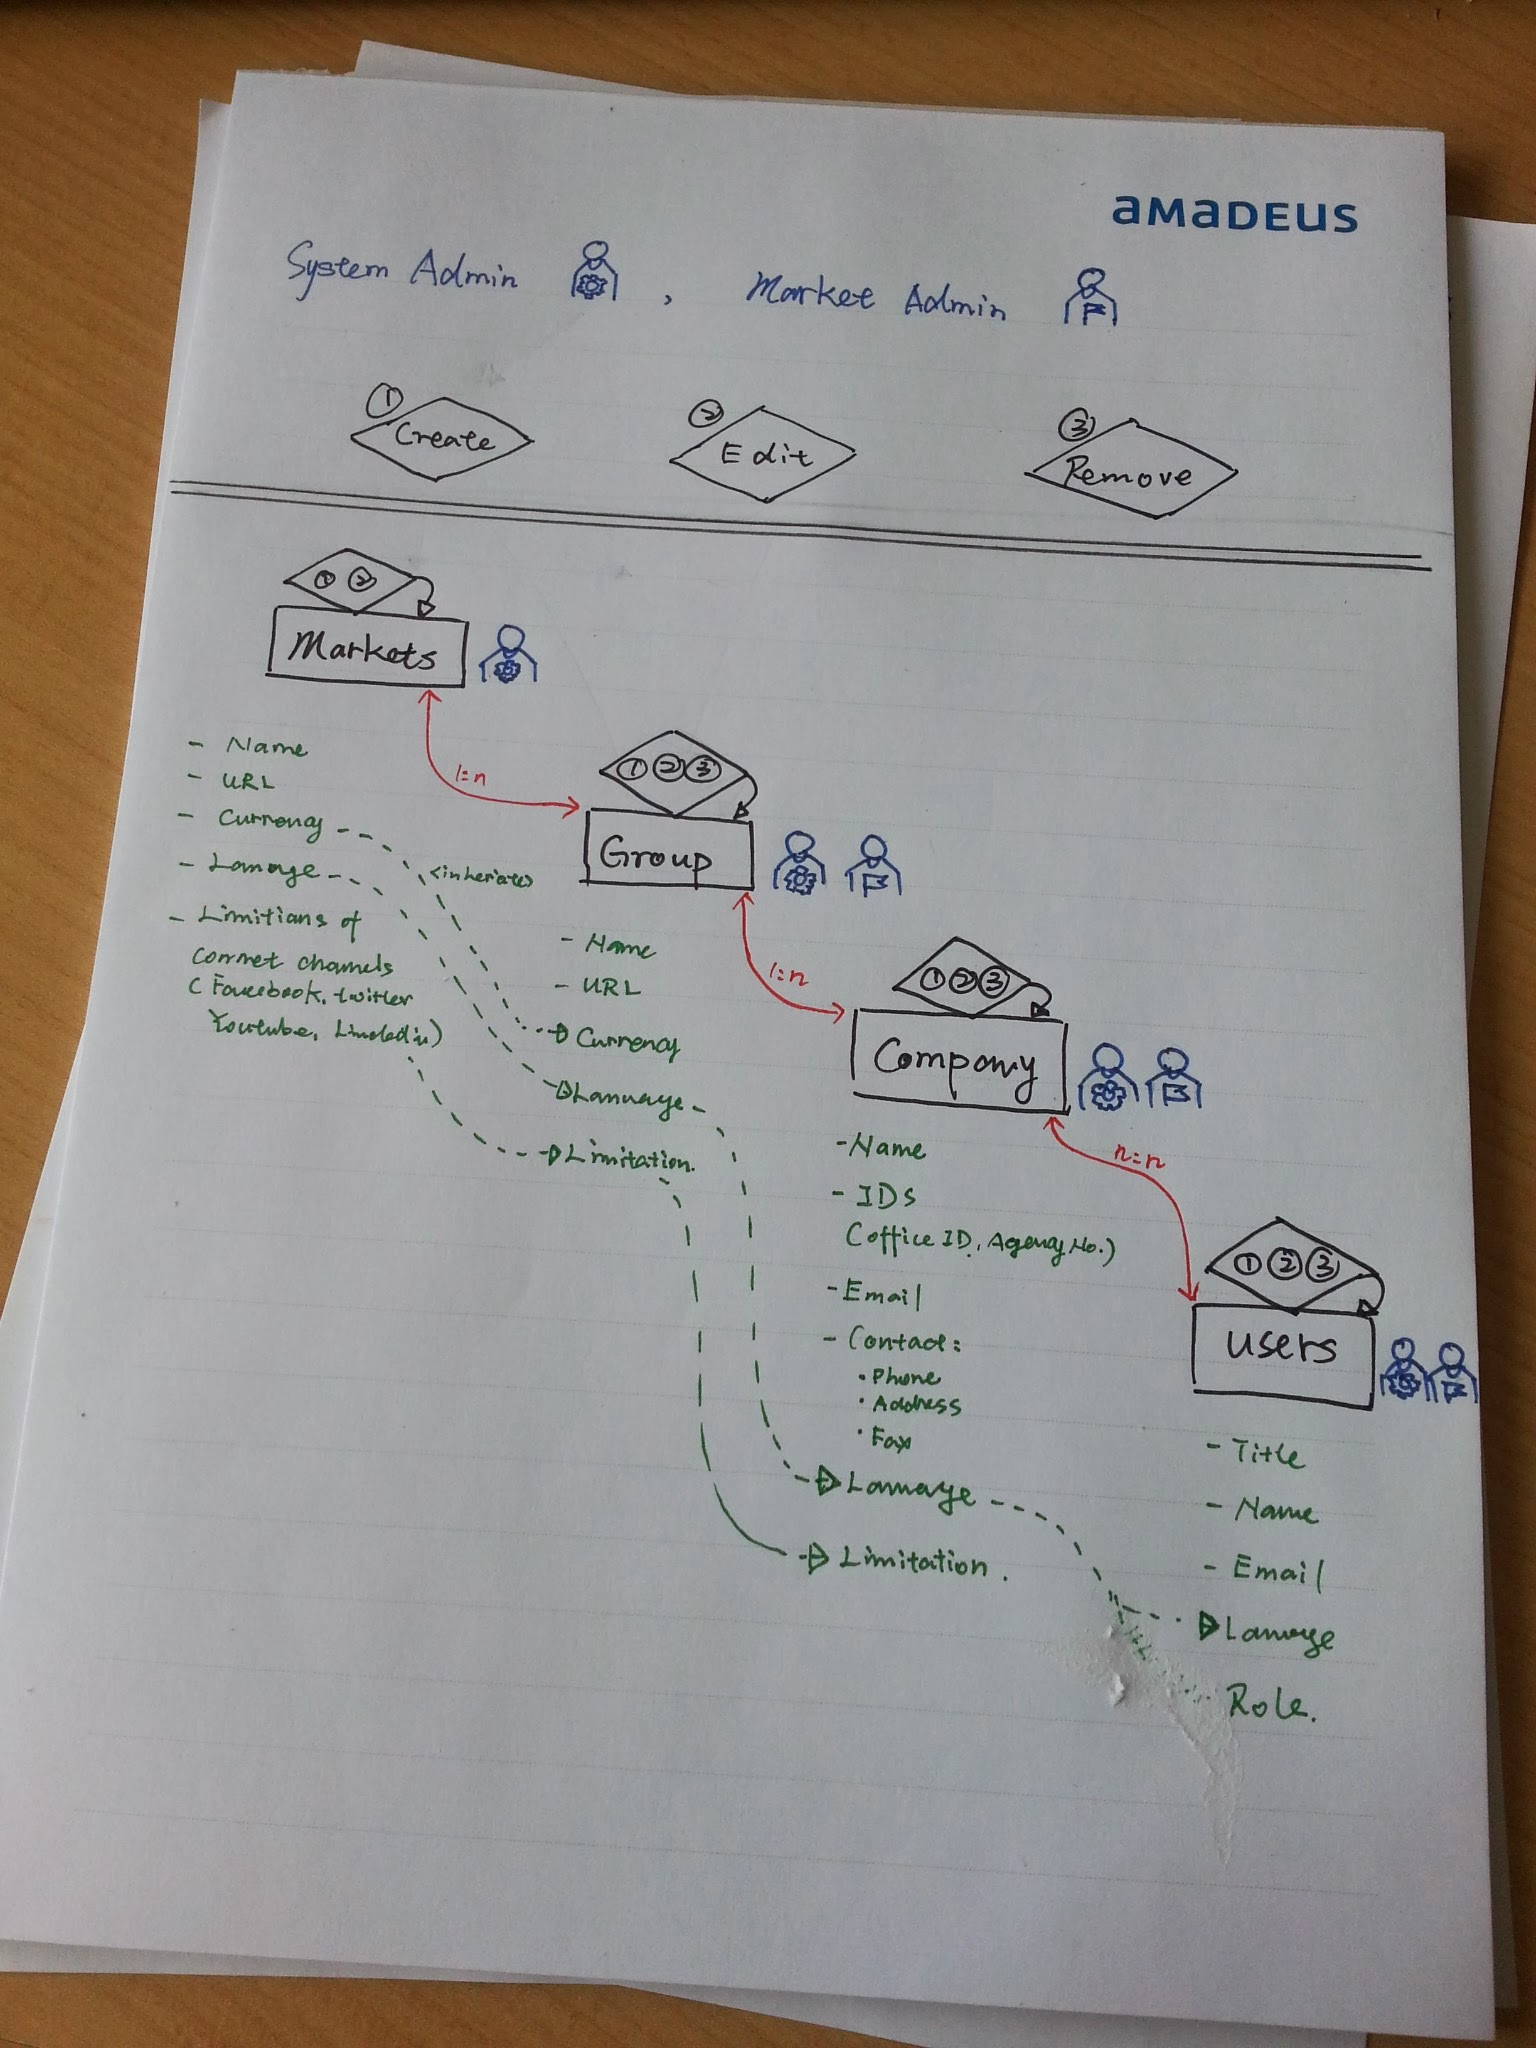 aMaDEUS
System Admin , Market Admin
① Create
② Edit
③ Remove
① ②
Markets
- Name
- URL
- Currency
- Lanauge
- Limitians of
connet channels
( Facebook, twitter
Youtube, Linkedin)
1:n
<inheriate>
① ② ③
Group
- Name
- URL
Currency
Lanuage
Limitation.
1:n
① ② ③
Company
- Name
- IDs
(office ID, Agency No.)
- Email
- Contact:
• Phone
• Address
• Fax
Lanuage
Limitation.
n:n
① ② ③
users
- Title
- Name
- Email
Lanuage
Role.